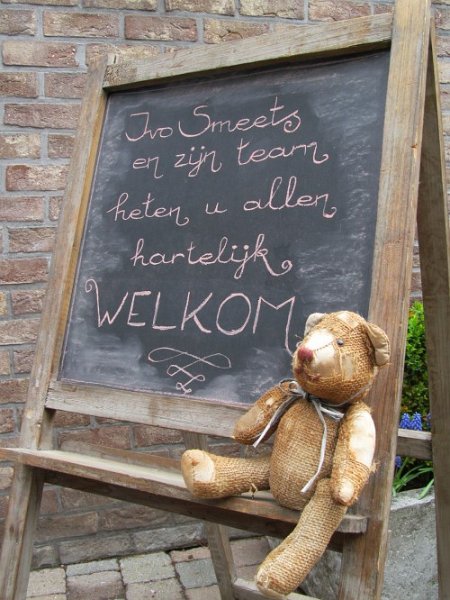 Ivo Smeets
en zijn team
heten u allen
hartelijk
WELKOM